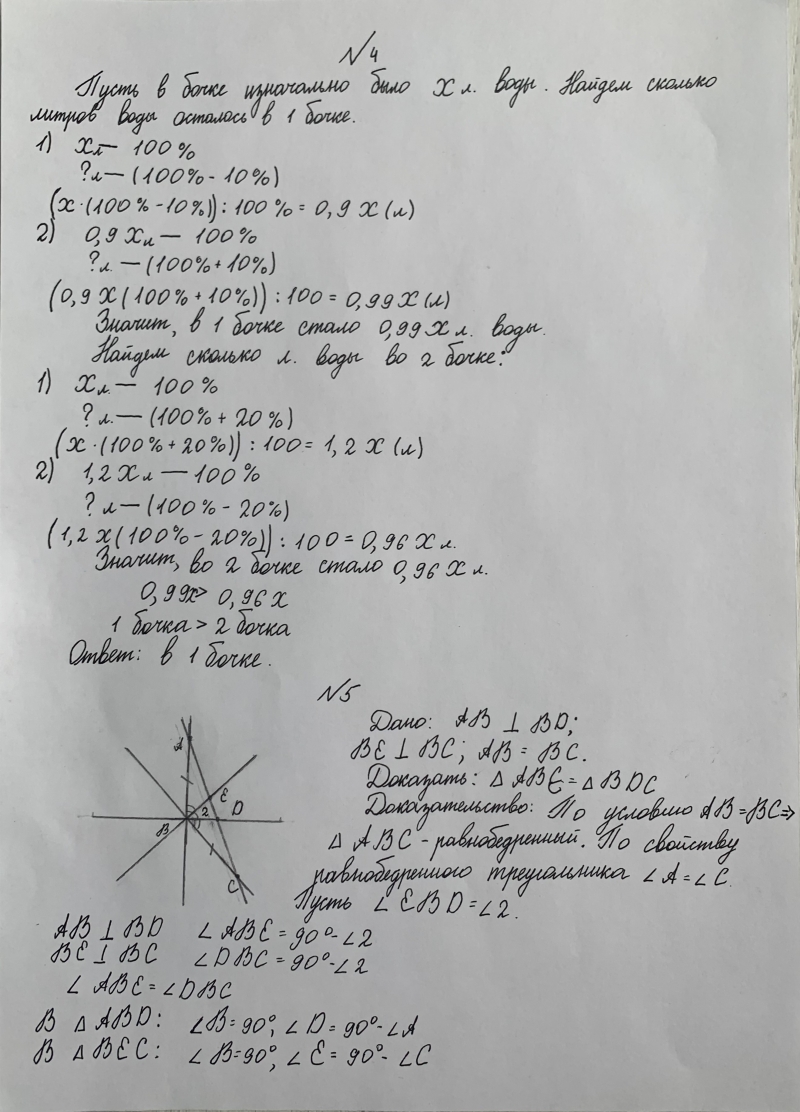 №4
Пусть в бочке изначально было x л. воды. Найдем сколько
литров воды осталось в 1 бочке.
1) xл — 100%
?л — (100% - 10%)
(x·(100% - 10%)) : 100% = 0,9x (л)
2) 0,9xл — 100%
?л. — (100% + 10%)
(0,9x(100% + 10%)) : 100 = 0,99x(л)
Значит, в 1 бочке стало 0,99x л. воды.
Найдем сколько л. воды во 2 бочке:
1) xл. — 100%
?л. — (100% + 20%)
(x·(100% + 20%)) : 100 = 1,2x (л)
2) 1,2xл — 100%
?л — (100% - 20%)
(1,2x(100% - 20%)) : 100 = 0,96x л.
Значит, во 2 бочке стало 0,96x л.
0,99x > 0,96x
1 бочка > 2 бочка
Ответ: в 1 бочке.
№5
Дано: AB ⊥ BD;
BE ⊥ BC; AB = BC.
Доказать: △ABE = △BDC
Доказательство: По условию AB = BC ⇒
△ABC - равнобедренный. По свойству
равнобедренного треугольника ∠A = ∠C.
Пусть ∠EBD = ∠2.
A
E
2
D
B
C
AB ⊥ BD ∠ABE = 90° - ∠2
BE ⊥ BC ∠DBC = 90° - ∠2
∠ABE = ∠DBC
В △ABD: ∠B = 90°, ∠D = 90° - ∠A
В △BEC: ∠B = 90°, ∠E = 90° - ∠C